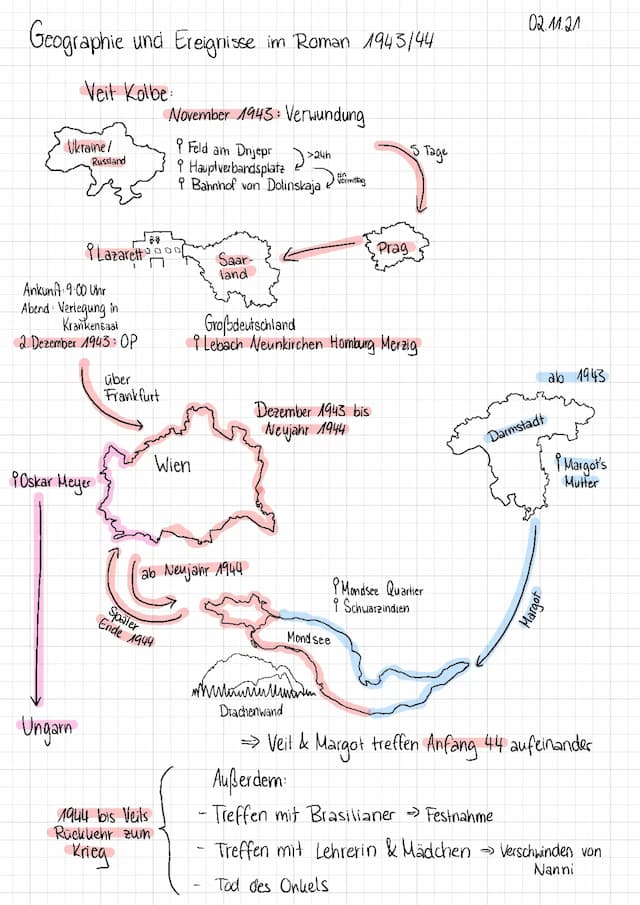 02.11.21
Geographie und Ereignisse im Roman 1943/44
Veit Kolbe:
November 1943: Verwundung
Ukraine/
Russland
Feld am Dnjepr
>24h
Hauptverbandsplatz
Bahnhof von Dolinskaja
ein
Vormittag
5 Tage
Prag
Saar-
land
Lazarett
Ankunft: 9:00 Uhr
Abend: Verlegung in
Krankensaal
2. Dezember 1943: OP
Großdeutschland
Lebach Neunkirchen Homburg Merzig
über
Frankfurt
Dezember 1943 bis
Neujahr 1944
ab 1943
Darmstadt
Margot's
Mutter
Wien
Oskar Meyer
ab Neujahr 1944
Später
Ende 1944
Mondsee Quartier
Schwarzindien
Margot
Mondsee
Drachenwand
Ungarn
⇒ Veit & Margot treffen Anfang 44 aufeinander
Außerdem:
1944 bis Veits
Rückkehr zum
Krieg
- Treffen mit Brasilianer ⇒ Festnahme
- Treffen mit Lehrerin & Mädchen ⇒ Verschwinden von
Nanni
- Tod des Onkels